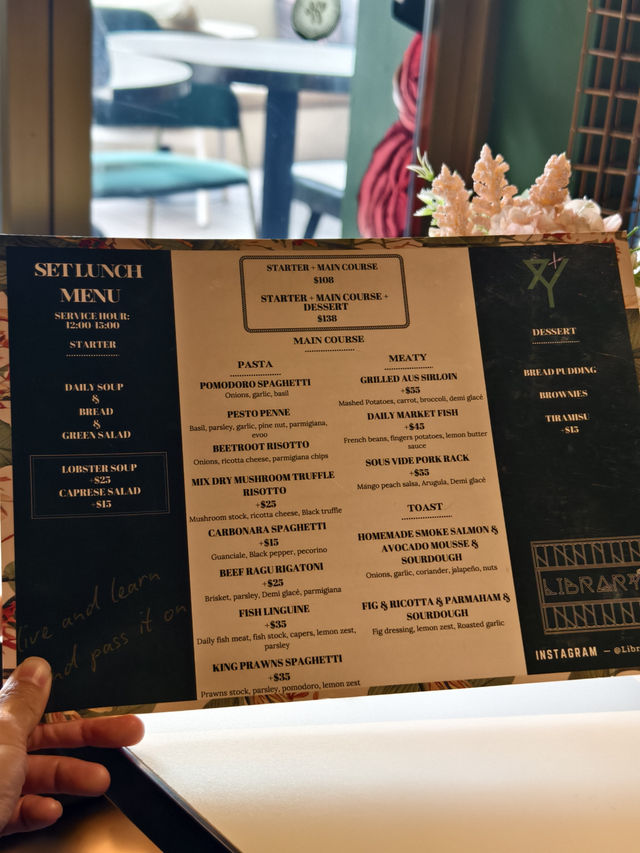 SET LUNCH
MENU
SERVICE HOUR:
12:00-15:00
STARTER
DAILY SOUP
&
BREAD
&
GREEN SALAD
LOBSTER SOUP
+$25
CAPRESE SALAD
+$15
live and learn
and pass it on
STARTER + MAIN COURSE
$108
STARTER + MAIN COURSE +
DESSERT
$138
MAIN COURSE
PASTA
POMODORO SPAGHETTI
Onions, garlic, basil
PESTO PENNE
Basil, parsley, garlic, pine nut, parmigiana,
evoo
BEETROOT RISOTTO
Onions, ricotta cheese, parmigiana chips
MIX DRY MUSHROOM TRUFFLE
RISOTTO
+$25
Mushroom stock, ricotta cheese, Black truffle
CARBONARA SPAGHETTI
+$15
Guanciale, Black pepper, pecorino
BEEF RAGU RIGATONI
+$25
Brisket, parsley, Demi glacé, parmigiana
FISH LINGUINE
+$35
Daily fish meat, fish stock, capers, lemon zest,
parsley
KING PRAWNS SPAGHETTI
+$35
Prawns stock, parsley, pomodoro, lemon zest
MEATY
GRILLED AUS SIRLOIN
+$55
Mashed Potatoes, carrot, broccoli, demi glacé
DAILY MARKET FISH
+$45
French beans, fingers potatoes, lemon butter
sauce
SOUS VIDE PORK RACK
+$55
Mango peach salsa, Arugula, Demi glacé
TOAST
HOMEMADE SMOKE SALMON &
AVOCADO MOUSSE &
SOURDOUGH
Onions, garlic, coriander, jalapeño, nuts
FIG & RICOTTA & PARMAHAM &
SOURDOUGH
Fig dressing, lemon zest, Roasted garlic
DESSERT
BREAD PUDDING
BROWNIES
TIRAMISU
+$15
LIBRARY
INSTAGRAM — @Libr